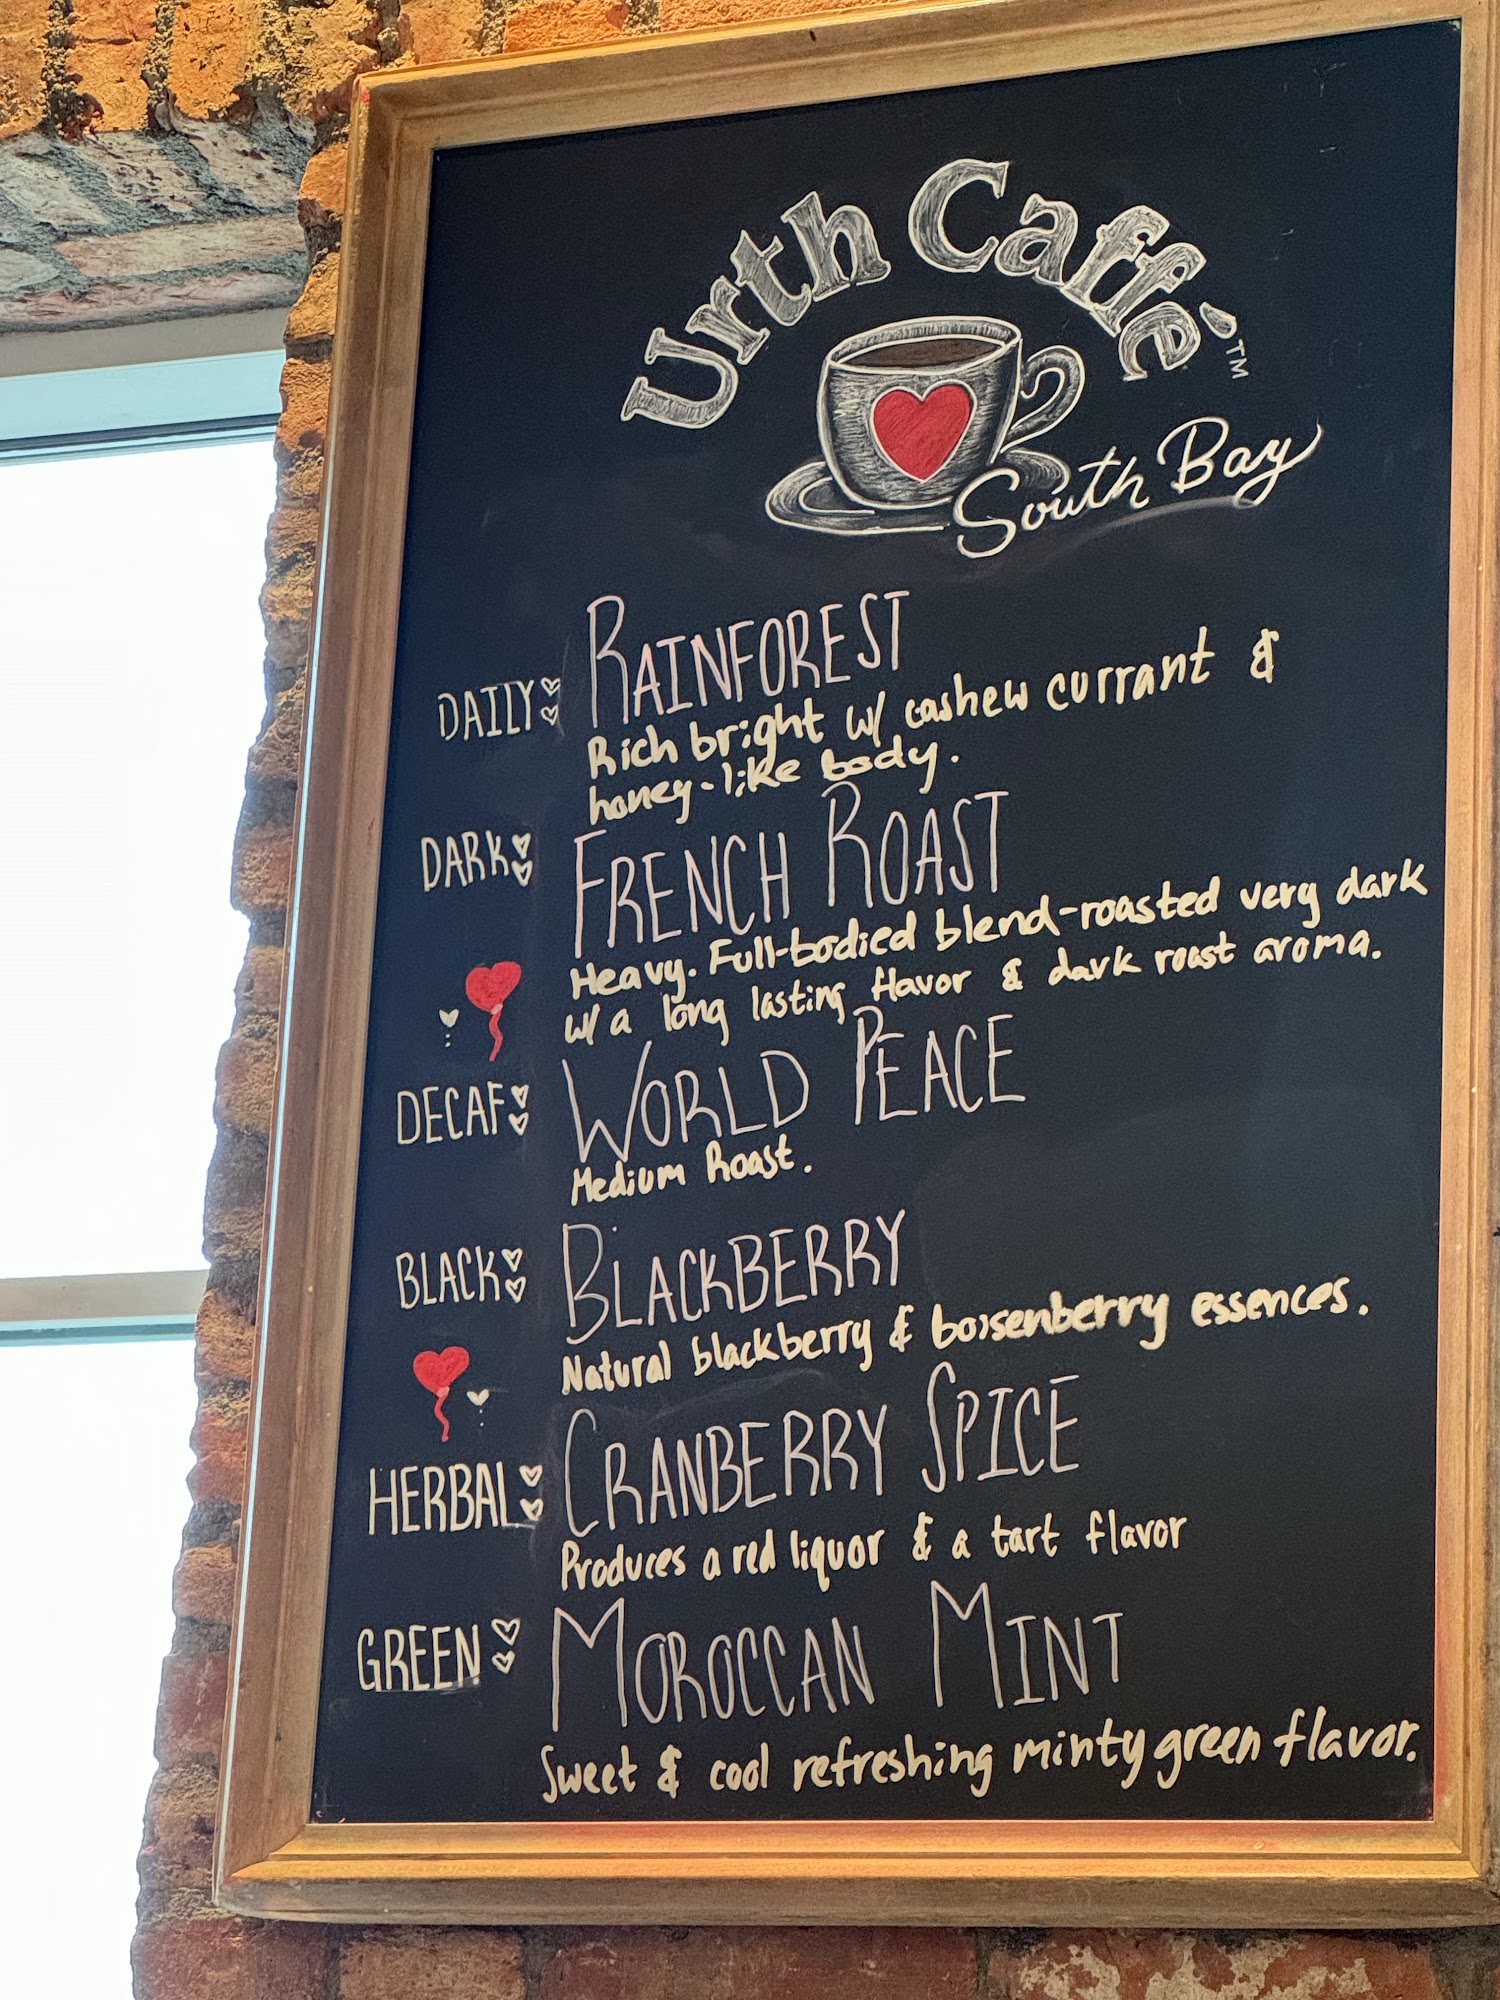 Urth Caffé™
South Bay
DAILY: RAINFOREST
Rich bright w/ cashew currant &
honey-like body.
DARK: FRENCH ROAST
Heavy. Full-bodied blend-roasted very dark
w/ a long lasting flavor & dark roast aroma.
DECAF: WORLD PEACE
Medium Roast.
BLACK: BLACKBERRY
Natural blackberry & boisenberry essences.
HERBAL: CRANBERRY SPICE
Produces a red liquor & a tart flavor
GREEN: MOROCCAN MINT
Sweet & cool refreshing minty green flavor.